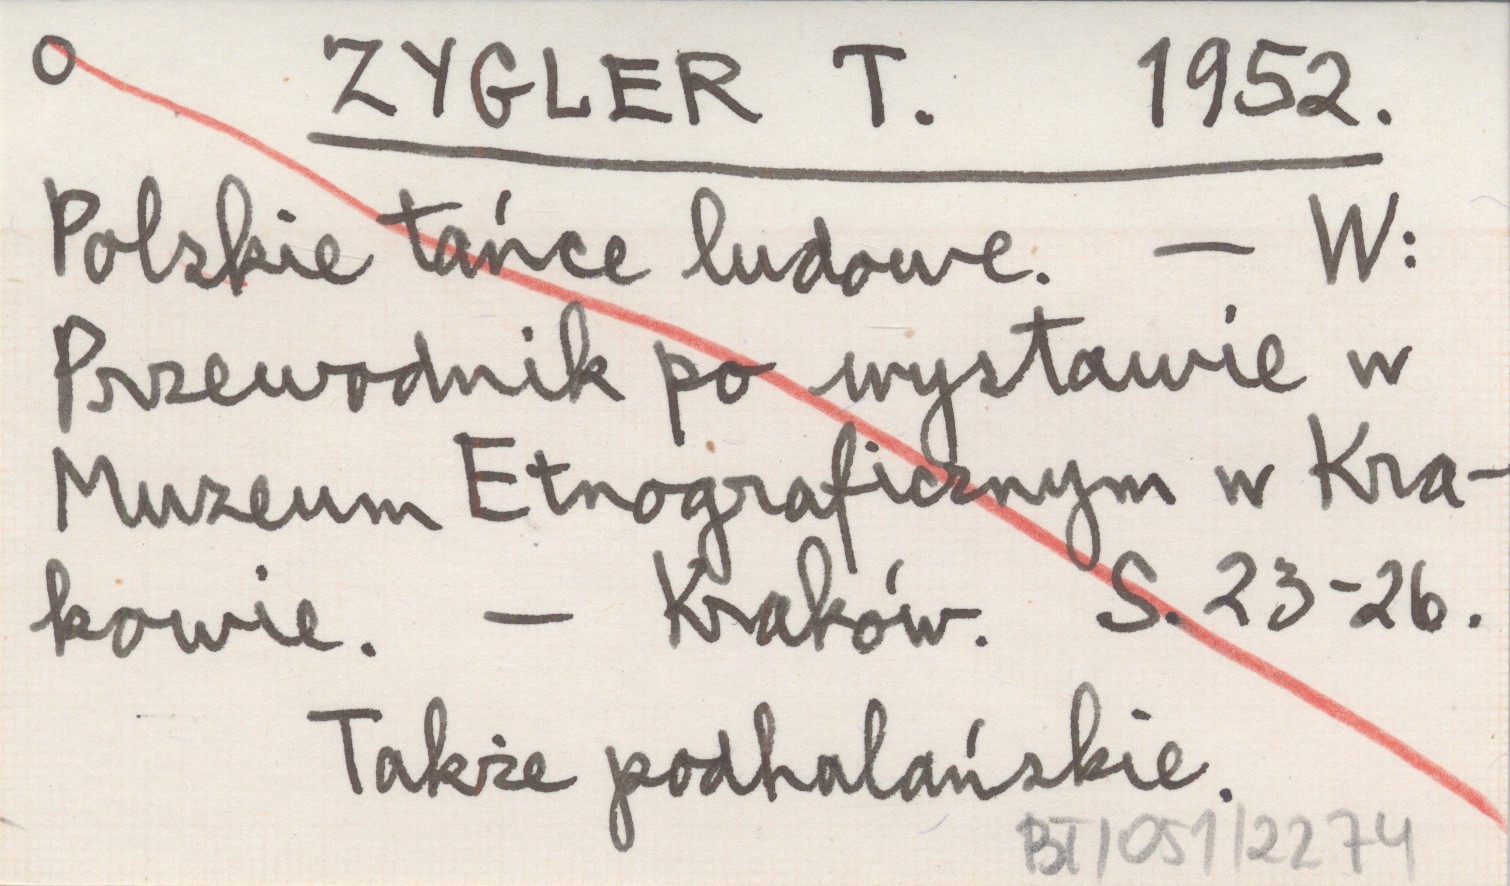 O ZYGLER T. 1952.
Polskie tańce ludowe. — W:
Przewodnik po wystawie w
Muzeum Etnograficznym w Kra-
kowie. — Kraków. S. 23-26.
Także podhalańskie.
BT/051/2274